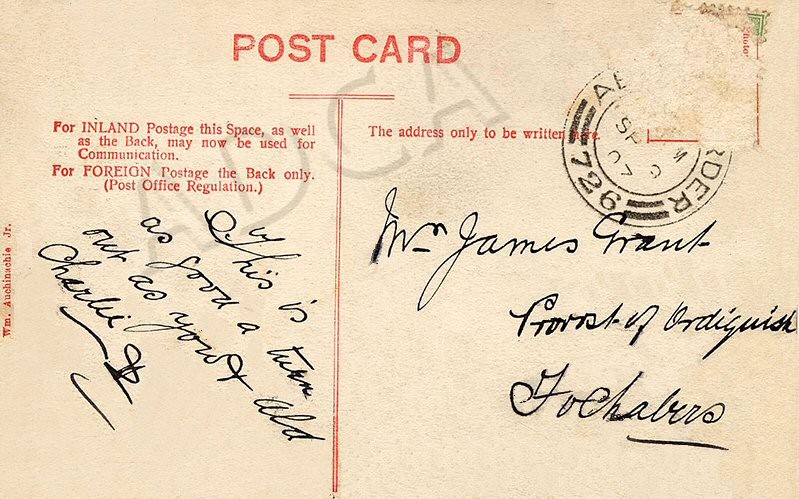 POST CARD
For INLAND Postage this Space, as well
as the Back, may now be used for
Communication.
For FOREIGN Postage the Back only.
(Post Office Regulation.)
The address only to be written here.
Photo
726
SP 9
07
RDER
Wm. Auchinachie Jr.
This is
as good a turn
out as your ald
Charlie
Mr James Grant
Provost of Ordiquish
Fochabers
ADCA